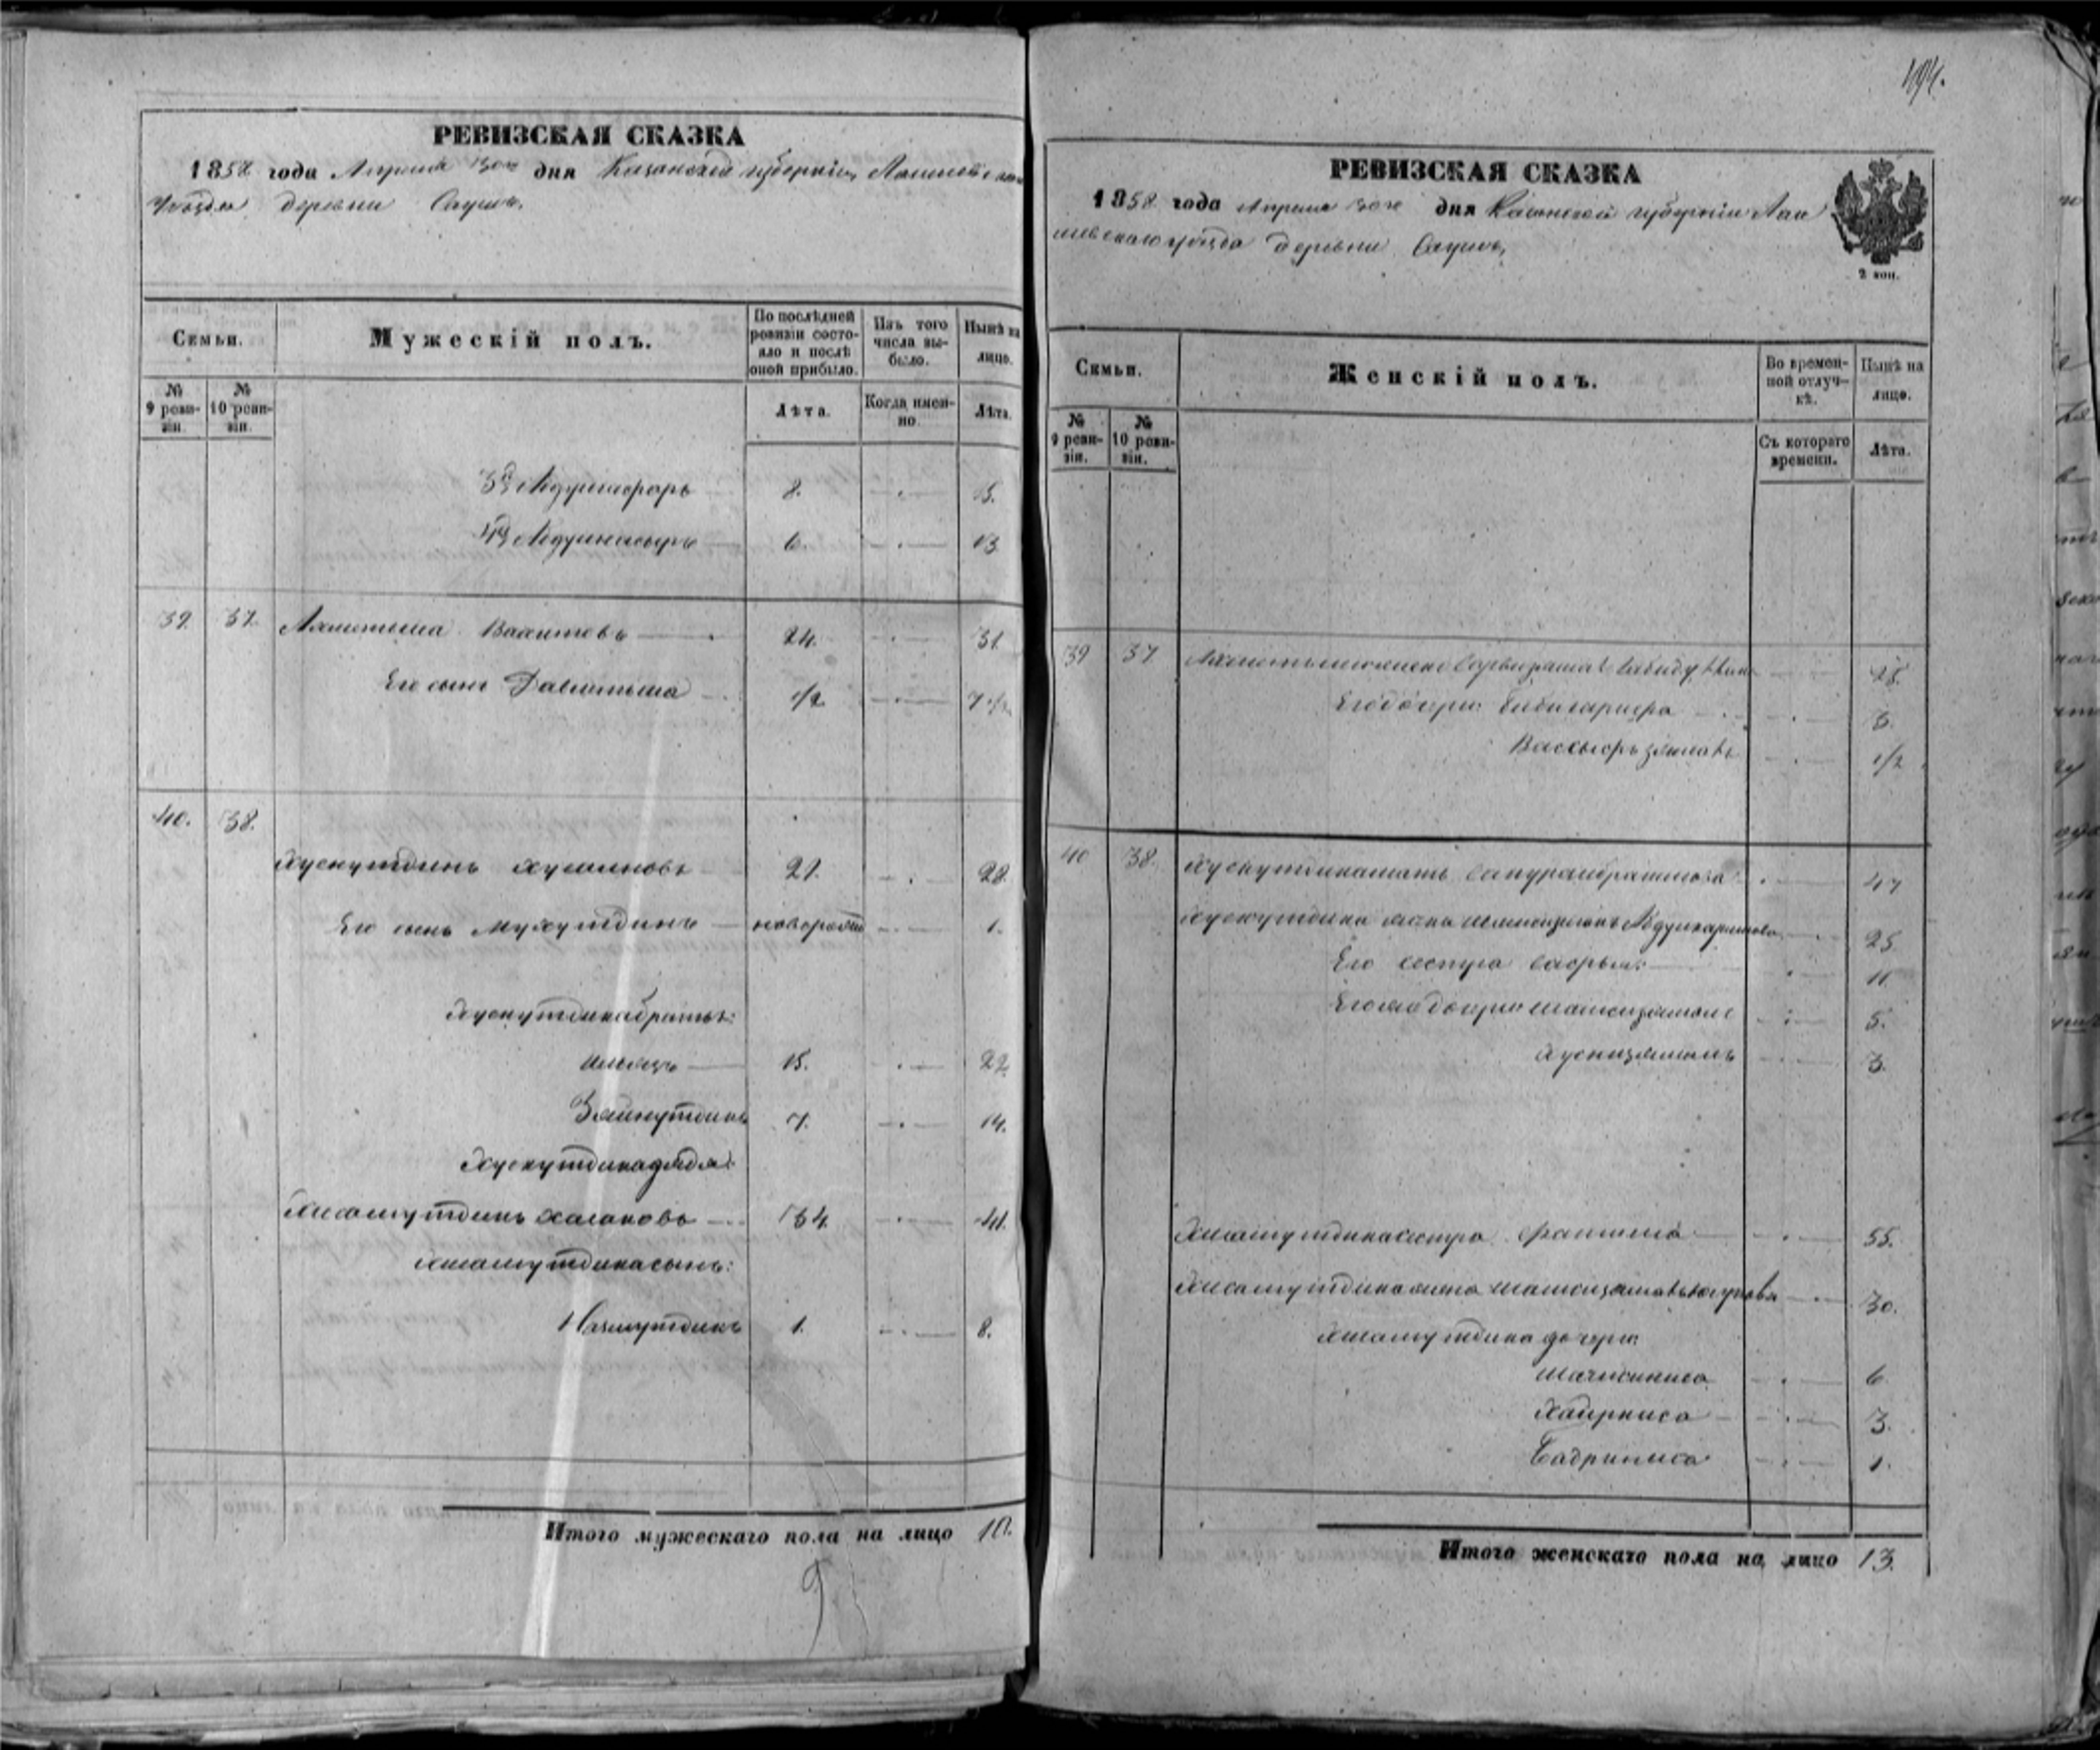 494.
РЕВИЗСКАЯ СКАЗКА
1858 года Апреля 30го дня Казанской губернiи Лаишевскаго
уѣзда деревни Саушъ.
Семьи.
Мужескiй полъ.
По послѣдней ревизiи состояло и послѣ оной прибыло.
Изъ того числа выбыло.
Нынѣ на лицо.
№ 9 ревизiи.
№ 10 ревизiи.
Лѣта.
Когда именно.
Лѣта.
3й 8. 15.
4й 6. 13
39. 37. Ахметьша Вахитовъ 24. 31
Его сынъ Давлетьша 1/2 7 1/2
40. 38.
Хуснутдинъ Хусаиновъ 21. 28.
Его сынъ Мухутдинъ новорожден 1.
Хуснутдина братья:
Ильясъ 15. 22
Зяйнутдинъ 7. 14.
Хуснутдина дядя:
Хисамутдинъ Хасановъ 34. 41.
Хисамутдина сынъ:
Назмутдинъ 1. 8.
Итого мужескаго пола на лицо 10.
9
РЕВИЗСКАЯ СКАЗКА
1858 года Апреля 30го дня Казанской губернiи Лаи
шевскаго уѣзда деревни Саушъ,
2 коп.
Семьи.
Женскiй полъ.
Во временной отлучкѣ.
Нынѣ на лицо.
№ 9 ревизiи.
№ 10 ревизiи.
Съ котораго времени.
Лѣта.
39 37 Ахметьши жена 28.
Его дочери: 3.
1/2
40 38. Хуснутдина мать 47
Хуснутдина жена 25
Его сестра 11
Его же дочери 5.
Хуснизямалъ 3.
Хисамутдина сестра Фатима 55.
Хисамутдина жена 30.
Хисамутдина дочери:
6
Хайрниса 3.
Бадриниса 1.
Итого женскаго пола на лицо 13.